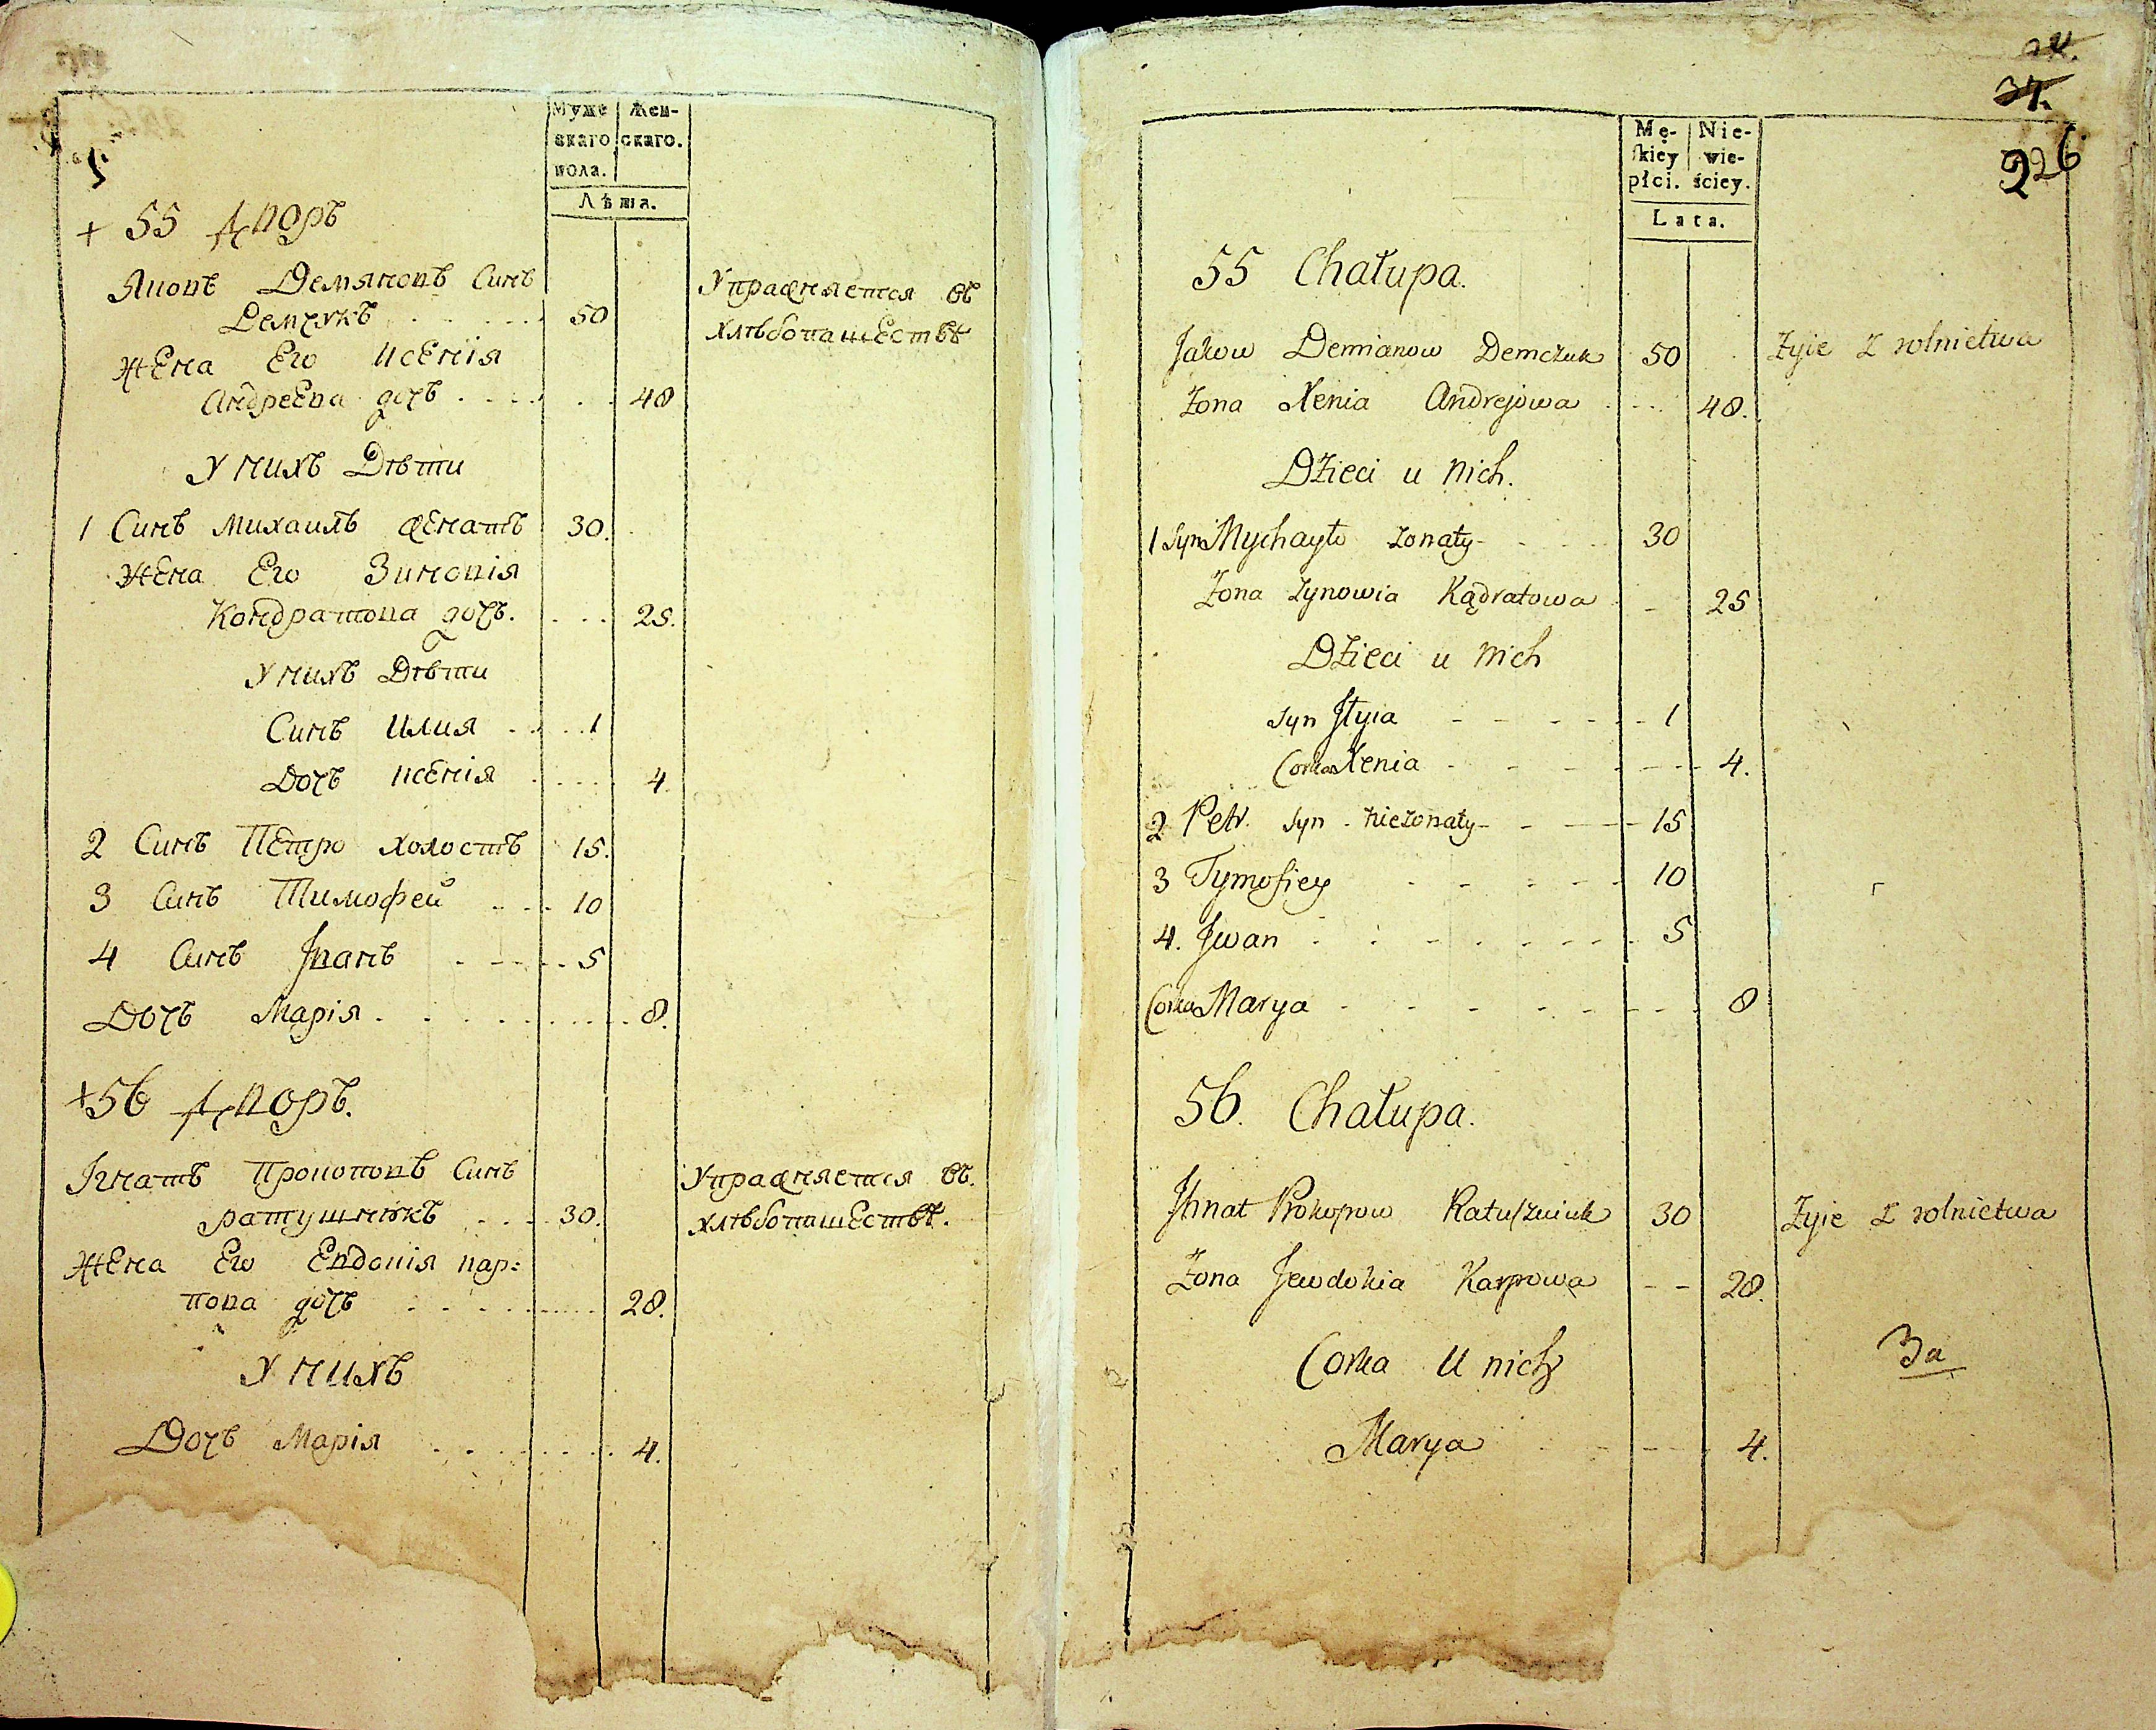 Муже
скаго
пола.
Жен-
скаго.
Лѣта.
+ 55 Дворъ
Яковъ Демяновъ Синъ
Демчукъ 50
Упражняется въ
хлѣбопашествѣ
Жена Его Ксенія
Андреева дочъ 48
У нихъ Дѣти
1 Синъ Михаилъ женатъ 30.
Жена Его Зиновія
Кондратова дочъ. 25.
У нихъ Дѣти
Синъ Илия 1
Дочъ Ксенія 4.
2 Синъ Петро холостъ 15.
3 Синъ Тимофей 10
4 Синъ Іванъ 5
Дочъ Марія 8.
+56 Дворъ.
Ігнатъ Прокоповъ Синъ
ратушнюкъ 30.
Упражняется въ.
хлѣбопашествѣ.
Жена Его Евдокія кар=
пова дочъ 28.
У нихъ
Дочъ Марія 4.
34.
226
Mę-
skiey
płci.
Nie-
wie-
ściey.
Lata.
55 Chałupa.
Jakow Demianow Demczuk 50 Zyie z rolnictwa
Żona Xenia Andrejowa 48.
Dzieci u nich.
1 Syn Mychayło żonaty 30
Żona Zynowia Kądratowa 25
Dzieci u nich
Syn Jłyia 1
Corka Xenia 4.
2 Petr. Syn nieżonaty 15
3 Tymofiey 10
4. Jwan 5
Corka Marya 8
56. Chałupa.
Jhnat Prokopow Ratuszniuk 30 Zyie z rolnictwa
Żona Jewdokia Karpowa 28.
Corka U nich
За
Marya 4.